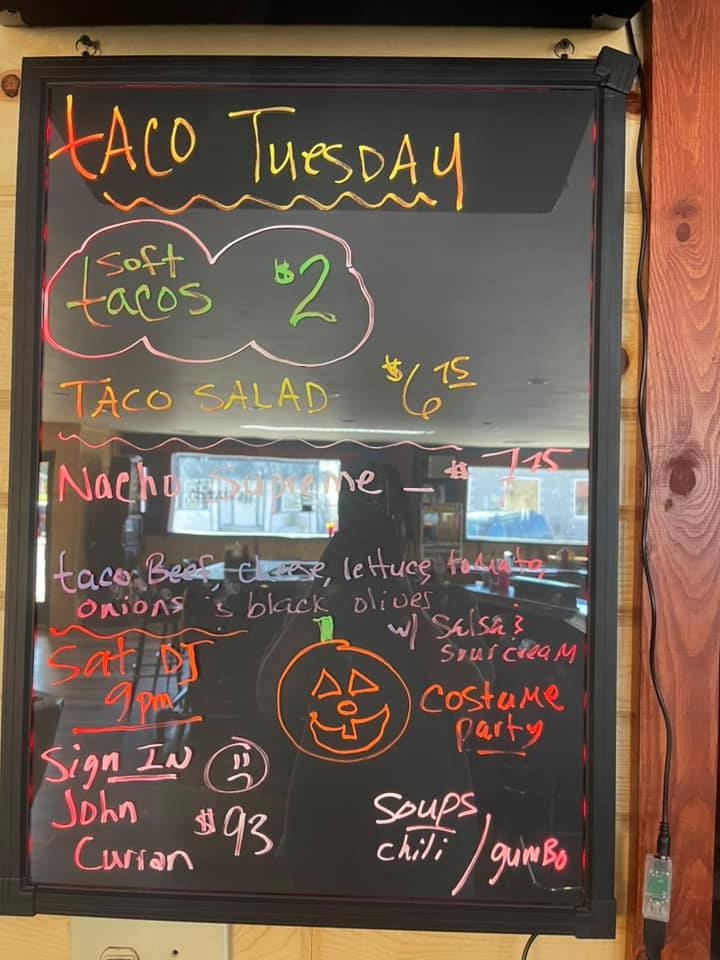 tACO TuesDAY
soft
tacos $2
TACO SALAD $6 75
Nacho Supreme - $7 75
taco Beef, cheese, lettuce, tomato,
onions & black olives
w/ Salsa &
sour cream
Sat DJ
9pm
costume
party
Sign IN
John $93
Curran
soups
chili / gumBo